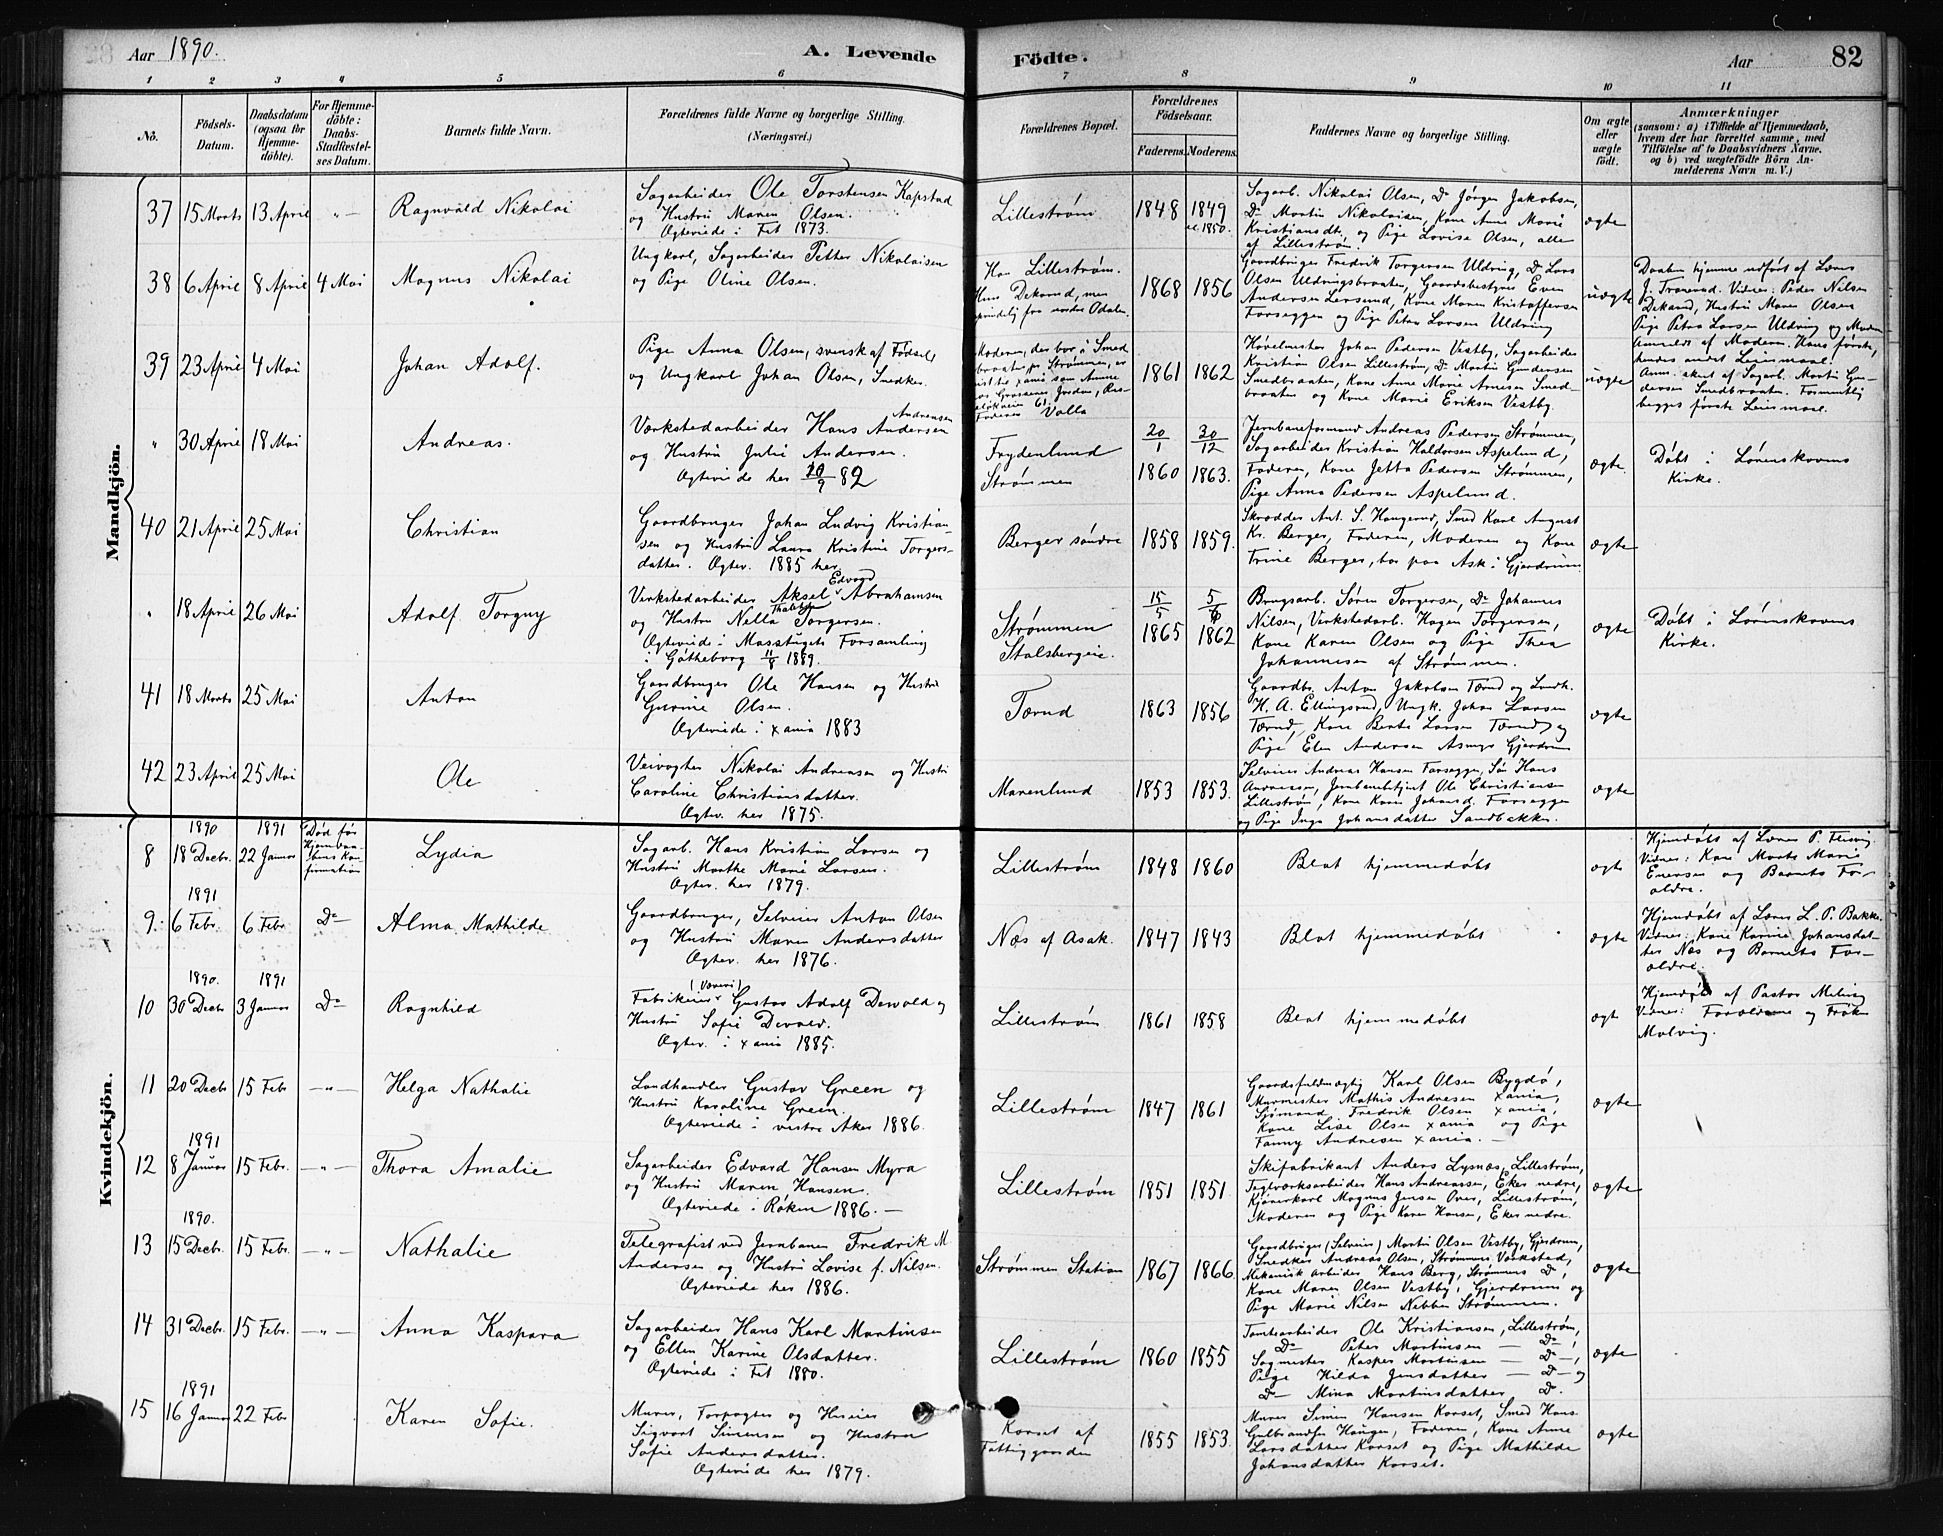 Aar 1890.
A. Levende Födte.
Aar
82
1 2 3 4 5 6 7 8 9 10 11
No.
Födsels-Datum.
Daabsdatum (ogsaa for Hjemme-döbte).
For Hjemme-döbte: Daabs-Stadfæstel-ses Datum.
Barnets fulde Navn.
Forældrenes fulde Navne og borgerlige Stilling. (Næringsvei.)
Forældrenes Bopæl.
Forældrenes Födselsaar.
Faderens. Moderens.
Faddernes Navne og borgerlige Stilling.
Om ægte eller uægte födt.
Anmærkninger
(saasom: a) i Tilfælde af Hjemmedaab,
hvem der har forrettet samme, med
Tilföielse af to Daabsvidners Navne,
og b) ved uægtefödte Börn An-
melderens Navn m. V.)
Mandkjön.
37 15 Marts 13 April -"- Ragnvald Nikolai
Sagarbeider Ole Torstensen Kapstad
og Hustru Maren Olsen.
Ægteviede i Fet 1873.
Lillestrøm 1848 1849 el. 1850.
Sagarb. Nikolai Olsen, Do Jørgen Jakobsen,
Do Martin Nikolaisen, Kone Anne Marie
Kristiansdt. og Pige Lovise Olsen, alle
af Lillestrøm.
ægte
38 6 April 8 April 4 Mai Magnus Nikolai
Ungkarl, Sagarbeider Petter Nikolaisen
og Pige Oline Olsen.
Han Lillestrøm.
Hun Dekerud, men
oprindelig fra nordre Odalen.
1868 1856
Gaardbruger Fredrik Torgersen Uldring, Do Lars
Olsen Uldringsbraaten, Gaardsbestyrer Even
Andersen Lersund, Kone Maren Kristoffersen
Farseggen og Pige Petra Larsen Uldring
uægte
Daaben hjemme udført af Lærer
J. Tranerud. Vidner: Peder Nilsen
Dekerud, Hustru Maren Olsen
Pige Petra Larsen Uldring og Moderen
Anmeldt af Moderen. Hans første,
hendes andet Leiermaal.
39 23 April 4 Mai Johan Adolf.
Pige Anna Olsen, svensk af Fødsel
og Ungkarl Johan Olsen, Snedker.
Moderen, der bor i Smed
braaten pr Strømmen, er
Faderen Valla
1861 1862
Høvelmester Johan Pedersen Vestby, Sagarbeider
Kristian Olsen Lillestrøm, Do Martin Gundersen
Smedbraaten, Kone Anne Marie Arnesen Smed-
braaten og Kone Marie Eriksen Vestby.
uægte
Anm. skent af Sagarb. Martin Gun-
dersen Smedbraaten. Formentlig
begges første Leiermaal.
" 30 April 18 Mai Andreas.
Andreasen
Værkstedarbeider Hans Andersen
og Hustru Julie Andersen.
Ægteviede her 10/9 82
Frydenlund
Strømmen
20/1 1860 30/12 1863.
Jernbaneformand Andreas Pedersen Strømmen,
Sagarbeider Kristian Haldorsen Aspelund,
Faderen, Kone Jetta Pedersen Strømmen,
Pige Anna Pedersen Aspelund.
ægte.
Døbt i Lørenskovens
Kirke.
40 21 April 25 Mai Christian
Gaardbruger Johan Ludvig Kristian-
sen og Hustru Laura Kristine Torgers-
datter. Ægtev. 1885 her
Berger søndre 1858 1859.
Skrædder Ant. S. Haugerud, Smed Karl August
Kr. Berger, Faderen, Moderen og Kone
Trine Berger, bor paa Ask i Gjerdrum
ægte
" 18 April 26 Mai Adolf Torgny
Edvard
Verkstedarbeider Aksel Abrahamsen
og Hustru Nella Torgersen.
Ægteviede i Masstugets Forsamling
i Gøtheborg 11/8 1889.
Strømmen
Stalsbergeie.
15/5 1865 5/6 1862
Brugsarb. Søren Torgersen, Do Johannes
Nilsen, Verkstedarb. Hagen Torgersen,
Kone Karen Olsen og Pige Thea
Johannesen af Strømmen.
ægte
Døbt i Lørenskovens
Kirke.
41 18 Marts 25 Mai Anton
Gaardbruger Ole Hansen og Hustru
Gurine Olsen.
Ægteviede i xania 1883
Tærud 1863 1856
Gaardbr. Anton Jakobsen Tærud og Landh.
H. A. Ellingsrud, Ungk. Johan Larsen
Tærud, Kone Berte Larsen Tærud og
Pige Elen Andersen Asmyr Gjerdrum
ægte
42 23 April 25 Mai Ole
Veivogter Nikolai Andreasen og Hustru
Caroline Christiansdatter.
Ægtev. her 1875.
Marenlund 1853 1853.
Selveier Andreas Hansen Farseggen, Søn Hans
Andreasen, Jernbanebetjent Ole Christiansen
Lillestrøm, Kone Karen Johansd. Farseggen
og Pige Inga Johansdatter Sandbakken.
ægte
Kvindekjön.
8 1890 18 Decbr. 1891 22 Januar
Død før
Hjemmedaa-
bens Kon-
firmation
Lydia
Sagarb. Hans Kristian Larsen og
Hustru Marthe Marie Larsen.
Ægtev. her 1879.
Lillestrøm 1848 1860
Blot hjemmedøbt
ægte
Hjemdøbt af Lærer P. Flesvig.
Vidner: Kone Marte Marie
Enersen og Barnets For-
ældre.
9. 1891 6 Febr. 6 Febr. Do Alma Mathilde
Gaardbruger, Selveier Anton Olsen
og Hustru Maren Andersdatter
Ægtev. her 1876.
Næs af Asak. 1847 1843
Blot hjemmedøbt
ægte
Hjemdøbt af Lærer L. P. Bakke.
Vidner: Kone Karine Johansdat-
ter Næs og Barnets For-
ældre.
10 1890. 30 Decbr 1891 3 Januar Do Ragnhild
(Væveri)
Fabrikeier Gustav Adolf Dewold og
Hustru Sofie Dewold.
Ægtev. i xania 1885.
Lillestrøm 1861 1858
Blot hjemmedøbt
ægte
Hjemdøbt af Pastor Meling
Vidner: Forældrene og Frøken
Malvig.
11 20 Decbr 15 Febr -"- Helga Nathalie
Landhandler Gustav Green og
Hustru Karoline Green.
Ægteviede i vestre Aker 1886.
Lillestrøm 1847 1861
Gaardsfuldmægtig Karl Olsen Bygdø,
Murmester Mathis Andresen xania,
Sjømand Fredrik Olsen xania,
Kone Lise Olsen xania og Pige
Fanny Andresen xania.
ægte
12 1891 8 Januar 15 Febr. -"- Thora Amalie
Sagarbeider Edvard Hansen Myra
og Hustru Maren Hansen.
Ægteviede i Røken 1886.
Lillestrøm 1851 1851.
Skifabrikant Anders Lysnes, Lillestrøm,
Teglværksarbeider Hans Andreassen, Eker nedre,
Kjørerkarl Magnus Jensen Over, Lillestrøm,
Moderen og Pige Karen Hansen, Eker nedre.
ægte
13 1890. 15 Decbr. 15 Febr. -"- Nathalie
Telegrafist ved Jernbanen Fredrik M
Andersen og Hustru Lovise f. Nilsen.
Ægteviede her 1886.
Strømmen Station 1867 1866.
Gaardbruger (Selveier) Martin Olsen Vestby, Gjerdrum,
Snedker Andreas Olsen, Strømmens Værksted,
Mekanisk arbeider Hans Berg, Strømmens Do,
Kone Maren Olsen Vestby, Gjerdrum og
Pige Marie Nilsen Nebben Strømmen.
ægte
14 31 Decbr. 15 Febr. -"- Anna Kaspara
Sagarbeider Hans Karl Martinsen
og Ellen Karine Olsdatter.
Ægteviede i Fet 1880.
Lillestrøm 1860 1855
Tomtearbeider Ole Kristiansen, Lillestrøm,
Do Peter Martinsen — Do —,
Sagmester Kasper Martinsen — Do —,
Pige Hilda Jensdatter — Do — og
Do — Mina Martinsdatter Do.
ægte
15 1891 16 Januar 22 Febr Karen Sofie.
Murer, Forpagter og Huseier
Sigvart Simensen og Hustru
Sofie Andersdatter.
Ægteviede her 1879.
Korset af
Fattiggaarden
1855 1853.
Murer Simen Hansen Korset, Smed Hans
Gulbrandsen Haugen, Faderen, Kone Anne
Larsdatter Korset og Pige Mathilde
Johansdatter Korset.
ægte